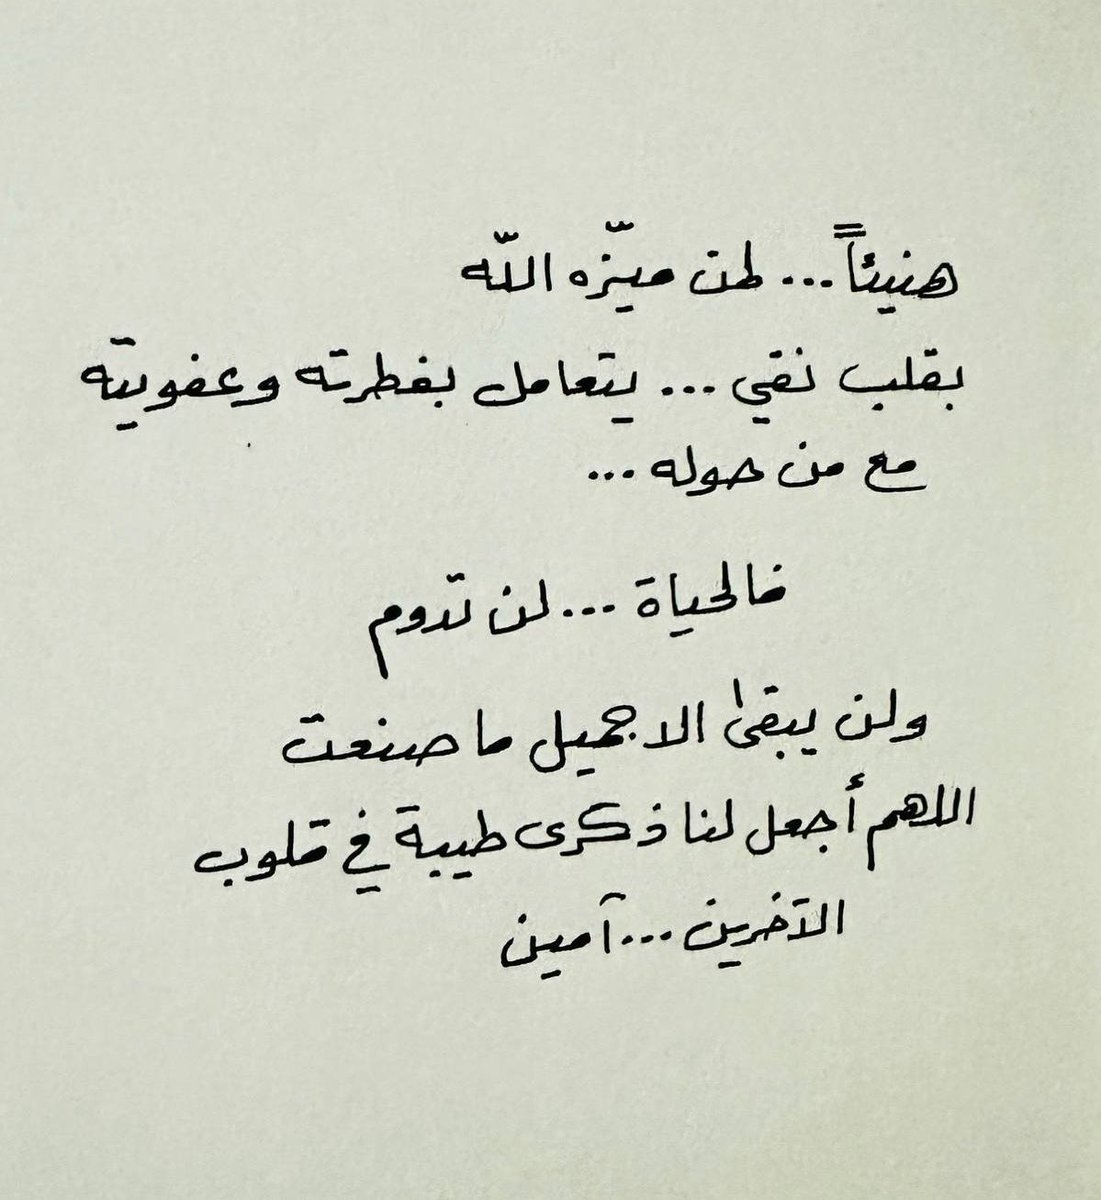 هنيئاً... لمن ميّزه اللّه
بقلب نقي... يتعامل بفطرته وعفويته
مع من حوله...
فالحياة... لن تدوم
ولن يبقىٰ الا جميل ما صنعت
اللهم أجعل لنا ذكرى طيبة في قلوب
الآخرين... آمين